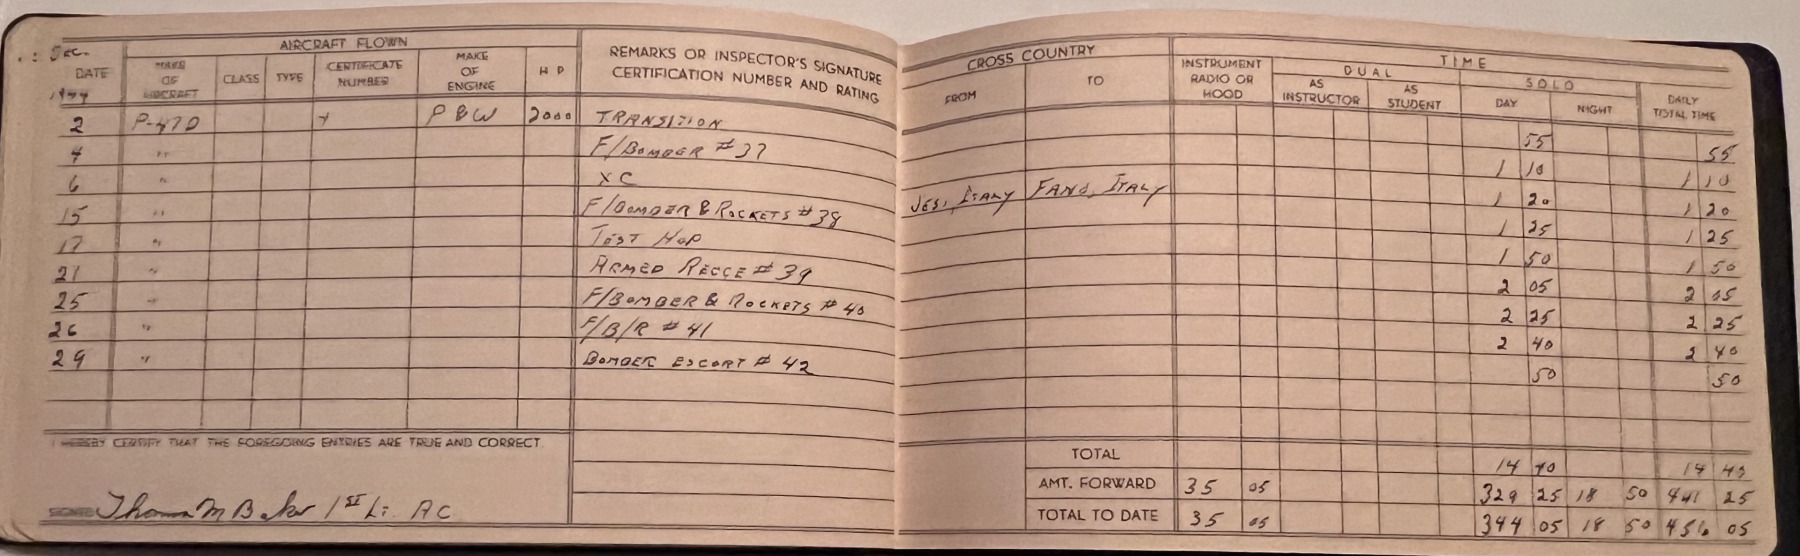 Dec. AIRCRAFT FLOWN REMARKS OR INSPECTOR'S SIGNATURE CERTIFICATION NUMBER AND RATING CROSS COUNTRY TIME
DATE 1944 MAKE OF AIRCRAFT CLASS TYPE CERTIFICATE NUMBER MAKE OF ENGINE H P FROM TO INSTRUMENT RADIO OR HOOD DUAL AS INSTRUCTOR AS STUDENT SOLO DAY NIGHT DAILY TOTAL TIME
2 P-47D P&W 2000 TRANSITION 55 55
4 " F/BOMBER #37 1 10 1 10
6 " XC JESI, ITALY FANO, ITALY 1 20 1 20
15 " F/BOMBER & ROCKETS #38 1 25 1 25
17 " TEST HOP 1 50 1 50
21 " ARMED RECCE #39 2 05 2 05
25 " F/BOMBER & ROCKETS #40 2 25 2 25
26 " F/B/R #41 2 40 2 40
29 " BOMBER ESCORT #42 50 50
I HEREBY CERTIFY THAT THE FOREGOING ENTRIES ARE TRUE AND CORRECT.
TOTAL 14 40 14 40
AMT. FORWARD 35 05 329 25 18 50 441 25
SIGNED Thomas M Baker 1ST Lt. AC
TOTAL TO DATE 35 05 344 05 18 50 456 05